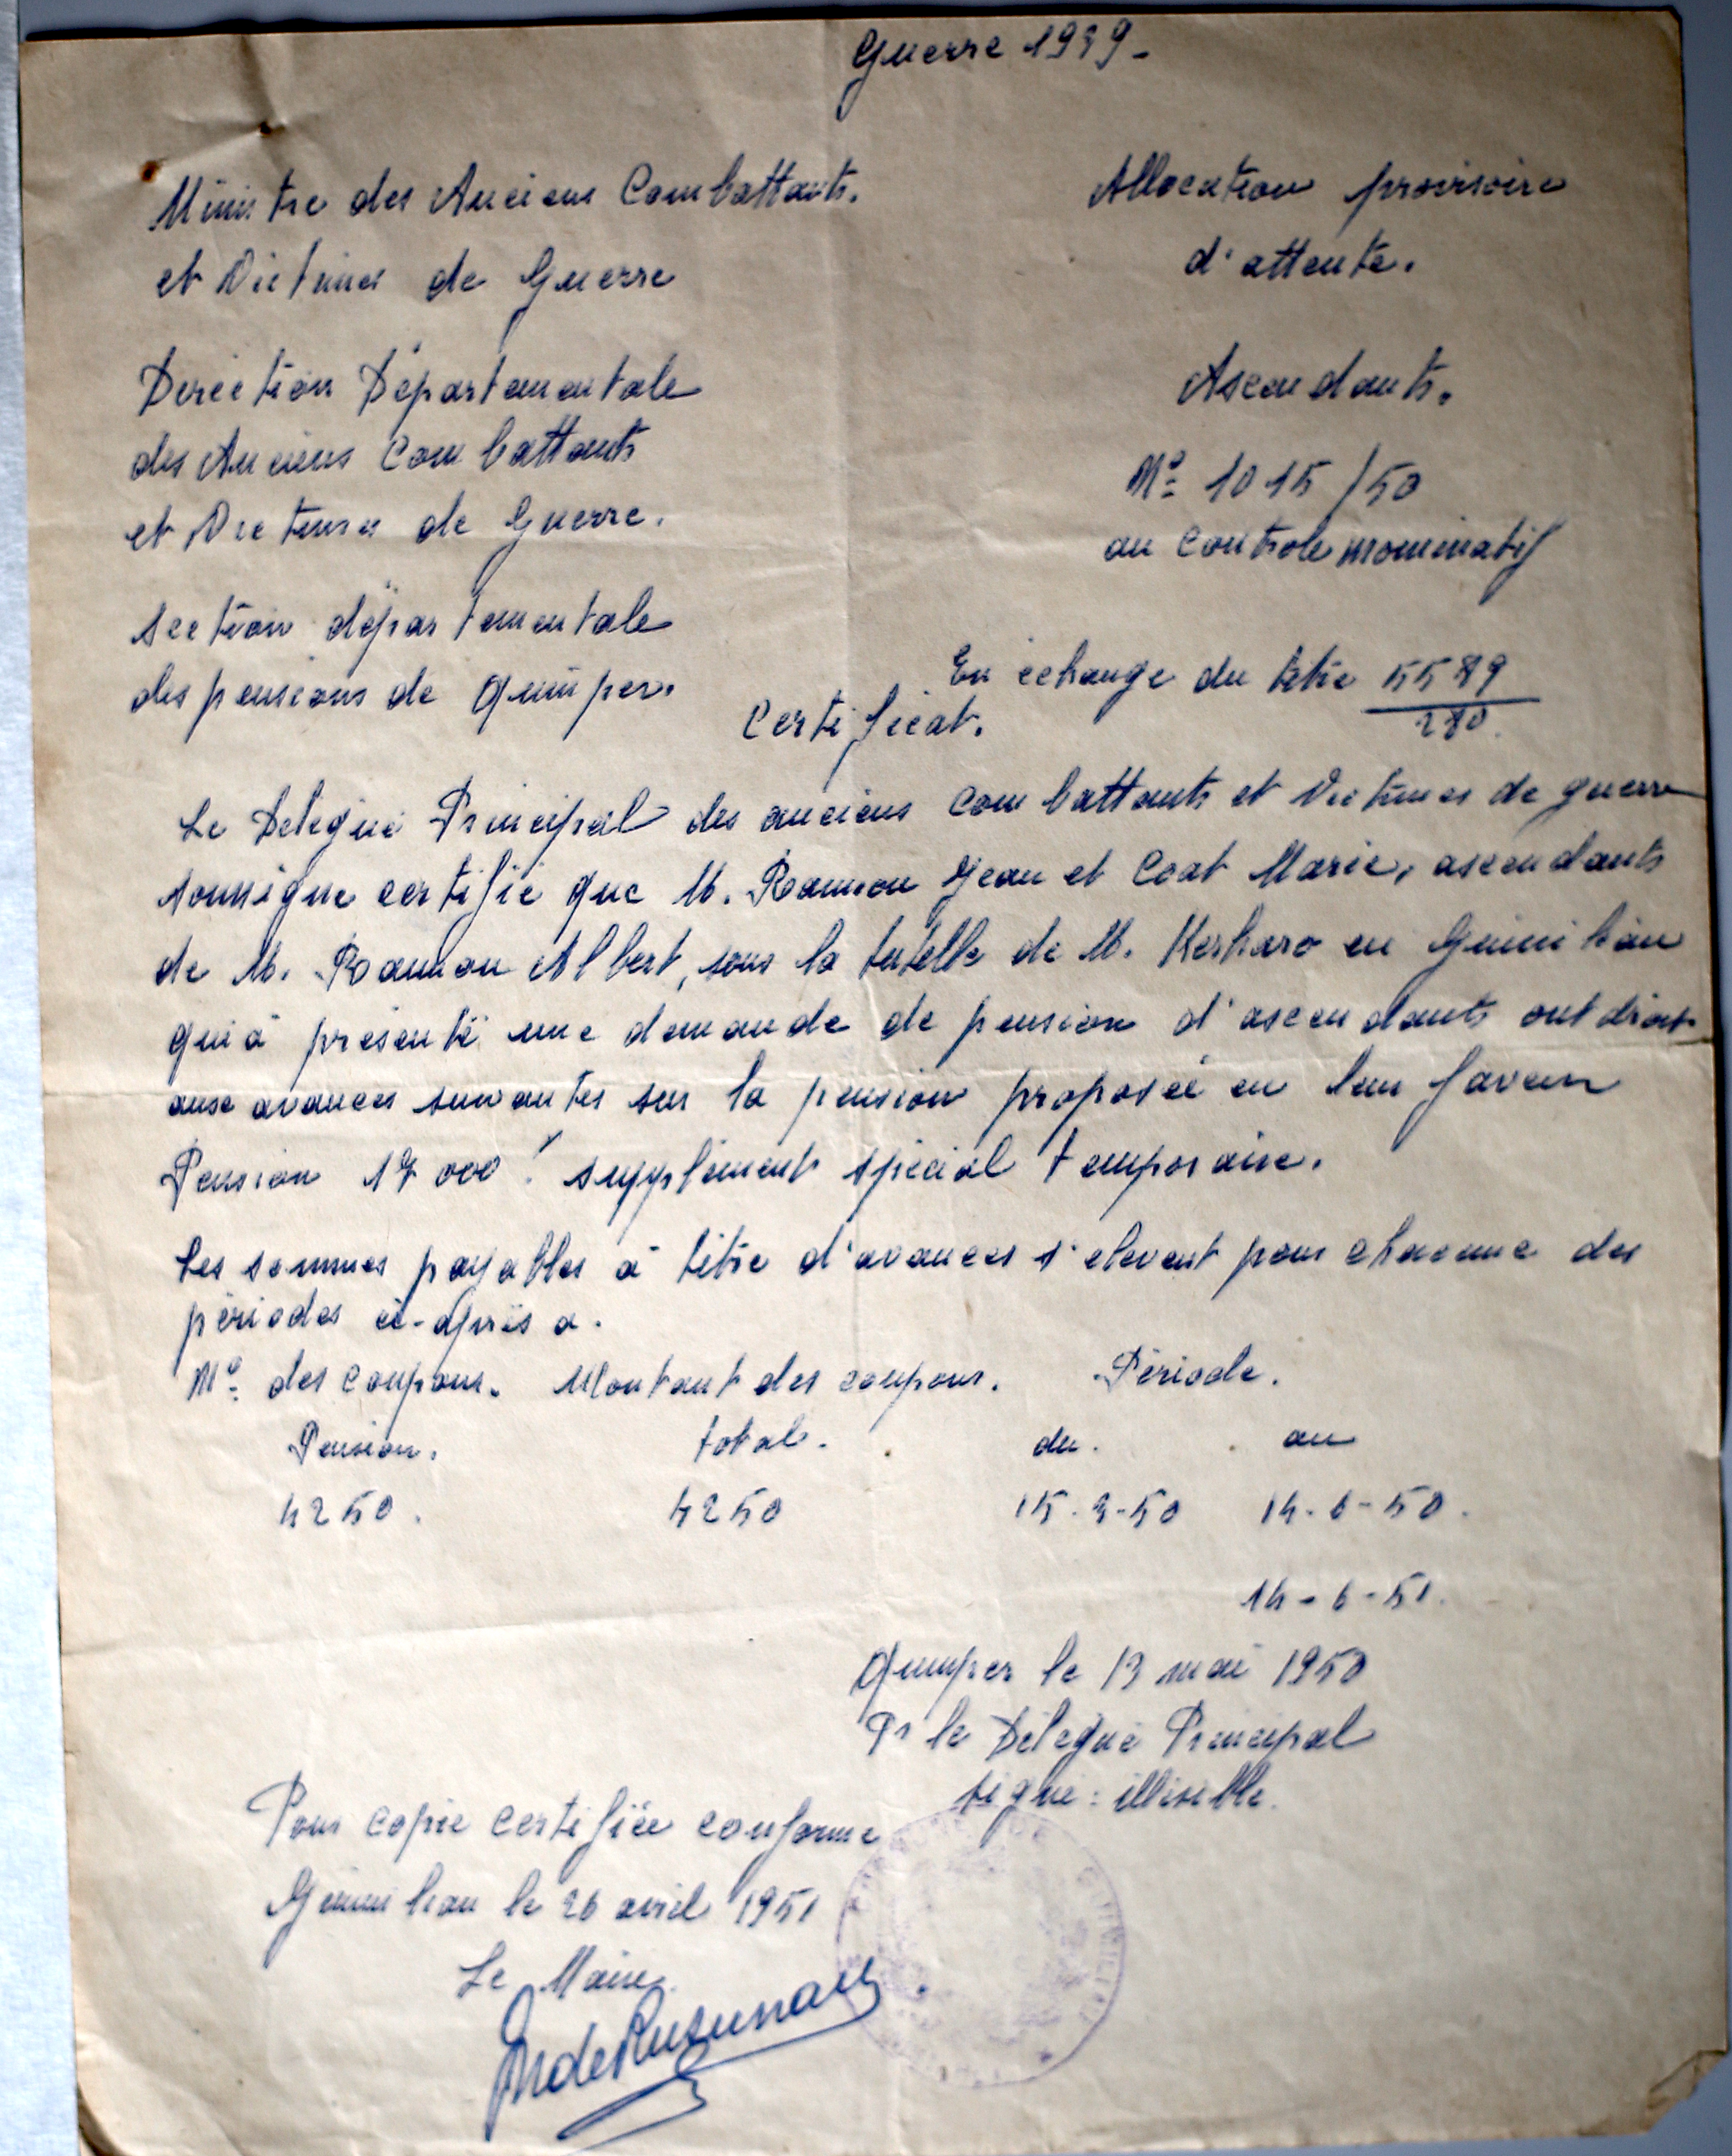 Guerre 1939-
Ministre des Anciens Combattants.
et Victimes de Guerre
Direction Départementale
des Anciens Combattants
et Victimes de Guerre.
section départementale
des pensions de Quimper.
Allocation provisoire
d'attente.
Ascendants.
Nº 1015/50
au controle nominatif
En échange du titre 5589
280.
Certificat.
Le Délégué Principal des anciens combattants et Victimes de guerre
soussigne certifie que M. Ramon Jean et Coat Marie, ascendants
de M. Ramon Albert, sous la tutelle de M. Kerharo en Guimiliau
qui à présenté une demande de pension d'ascendants ont droit
aux avances suivantes sur la pension proposée en leur faveur
Pension 17 000 f supplément spécial temporaire.
Les sommes payables à titre d'avances s'elevent pour chacune des
périodes ci-après a.
Nº des coupons. Montant des coupons. Période.
Pension. total. du. au
4250. 4250 15-3-50 14-6-50.
14-6-51.
Quimper le 13 mai 1950
Pr le Délégué Principal
signé: illisible.
Pour copie certifiée conforme
Guimiliau le 26 avril 1951
Le Maire.